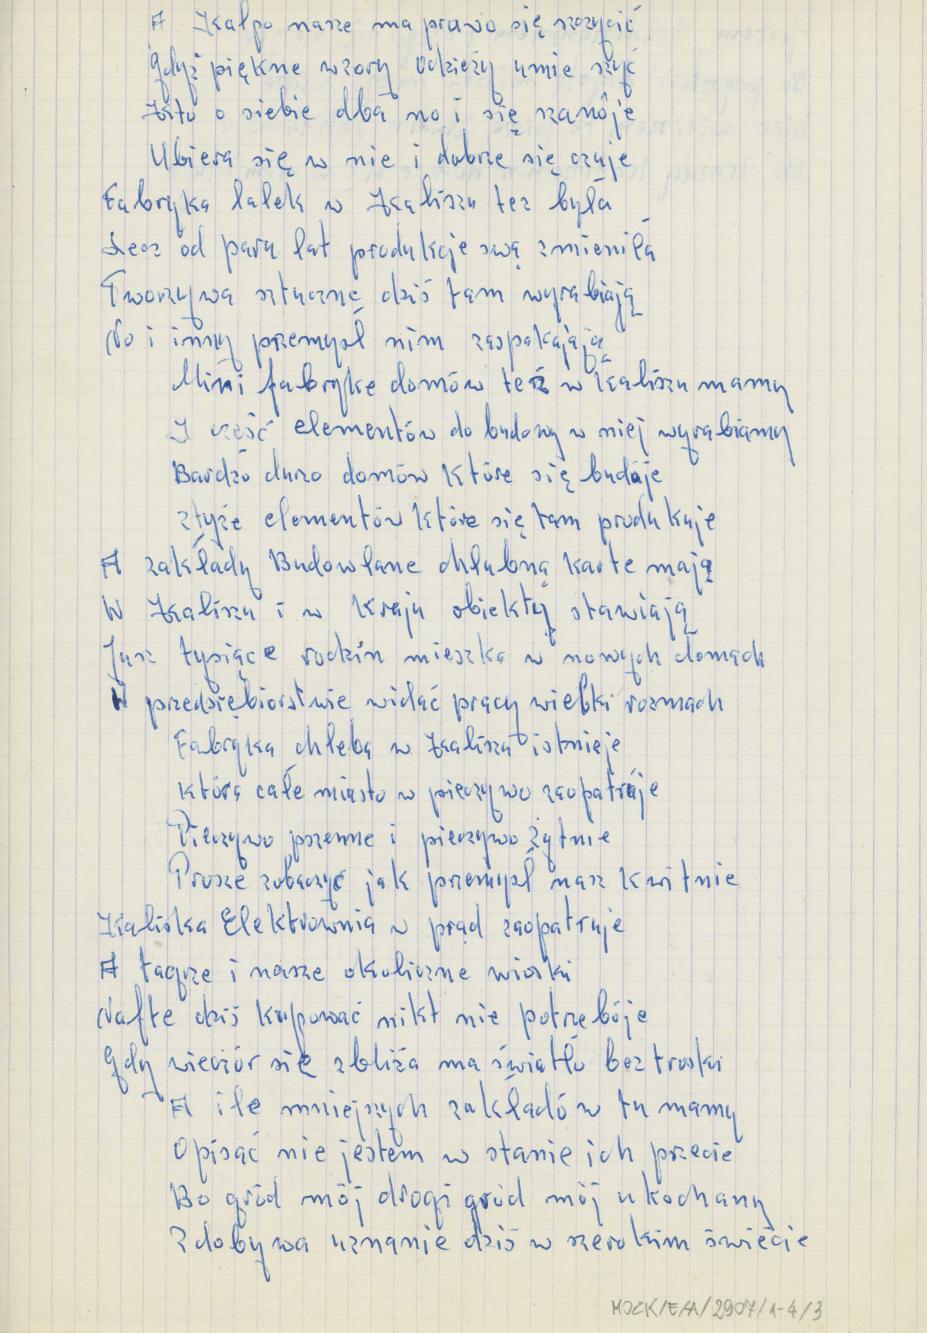 A Kalpo nasze ma prawo się szczycić
gdyż piękne wzory odzieży umie szyć
Kto o siebie dba no i się szanóje
Ubiera się w nie i dobrze się czuje
Fabryka lalek w Kaliszu tez była
Lecz od paru lat produkcje swą zmieniła
Tworzywa sztuczne dziś tam wyrabiają
No i inny przemysł nim zaspakajają
Mini fabrykę domów też w Kaliszu mamy
I cześć elementów do budowy w niej wyrabiamy
Bardzo duzo domów które się buduje
z tyże elementów które się tam produkuje
A zakłady Budowlane chlubną karte mają
W Kaliszu i w kraju obiekty stawiają
Jusz tysiące rodzin mieszka w nowych domach
W przedsiębiorstwie widać pracy wielki rozmach
Fabryka chleba w Kaliszu istnieje
która całe miasto w pieczywo zaopatruje
Pieczywo pszenne i pieczywo żytnie
Prosze zobaczyć jak przemysł nasz kwitnie
Kaliska Elektrownia w prąd zaopatruje
A taqrze i nasze okoliczne wioski
Nafte dziś kupować nikt nie potrzebóje
gdy wieczór się zbliża ma światło beztroski
A ile mniejszych zakładów tu mamy
Opisać nie jestem w stanie ich przecie
Bo gród mój drogi gród mój ukochany
Zdobywa uznanie dziś w szerokim świecie
MOZK/EAA/2907/1-4/3